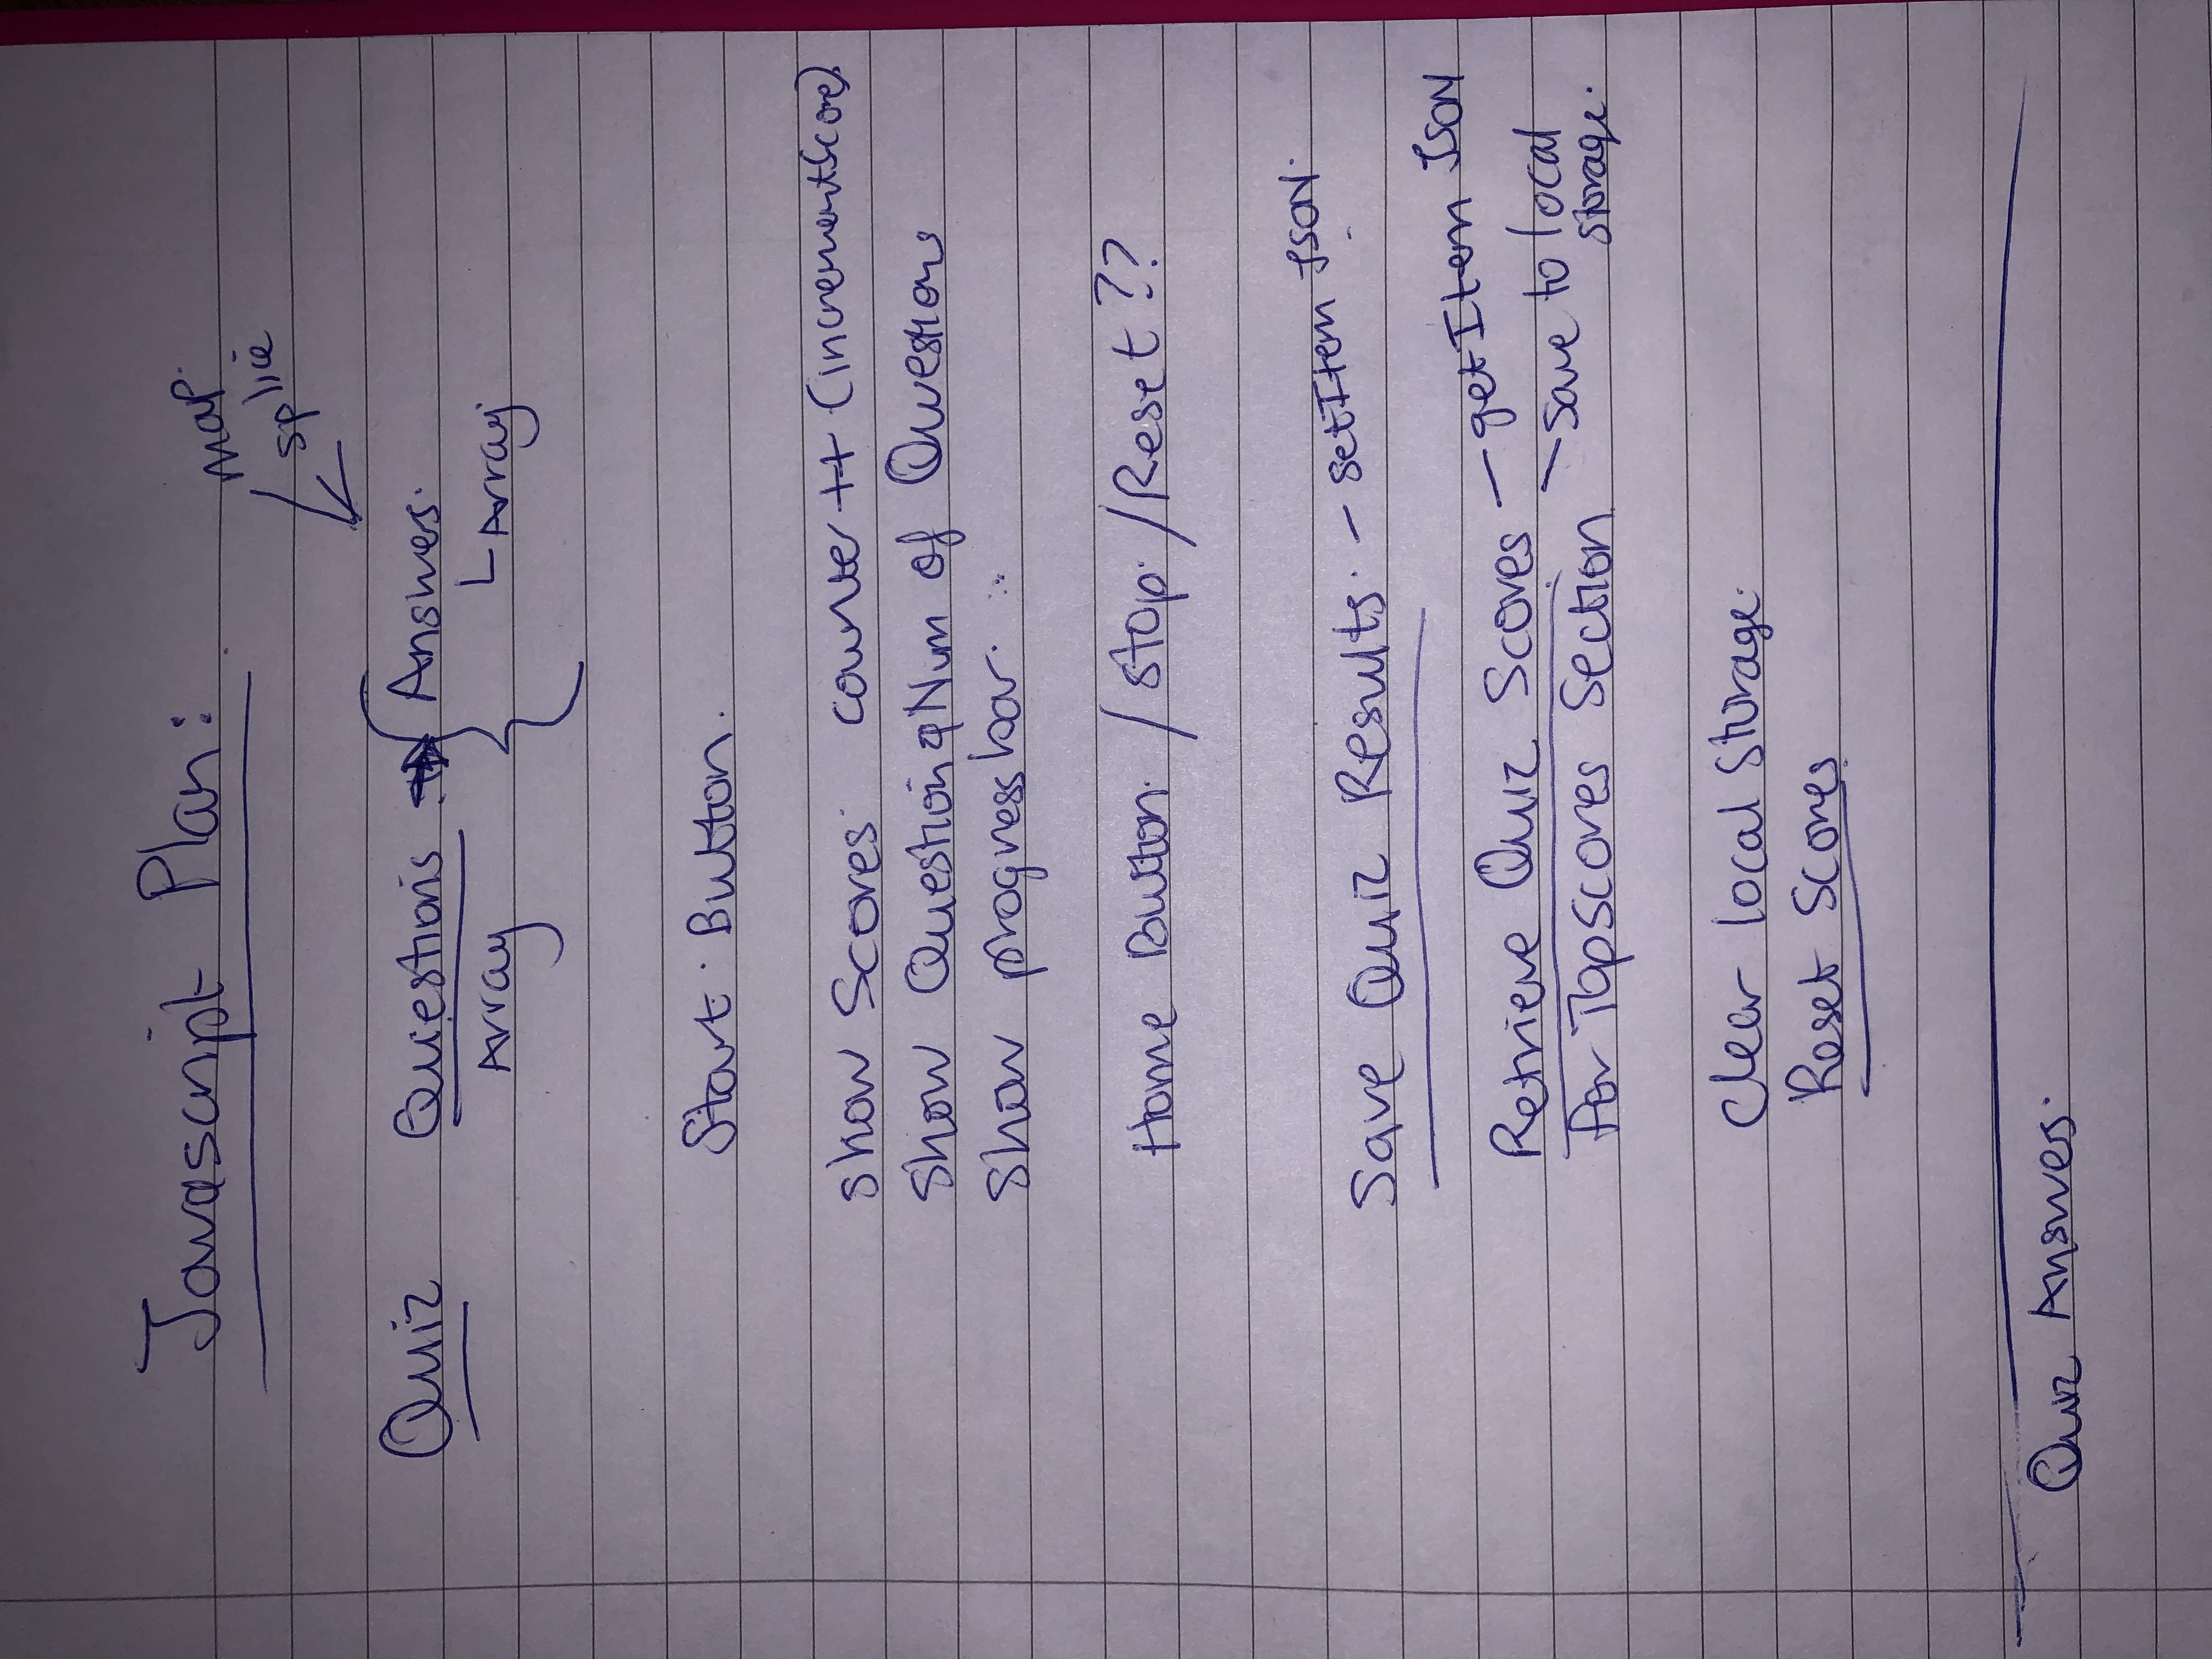 Javascript Plan:
map.
splice
Quiz Questions → { Answers.
Array └ Array
Start Button.
Show Scores counter ++ (incrementScore).
Show Question & Num of Questions
Show progress bar.
Home Button / Stop / Reset ??
Save Quiz Results. – setItem JSON.
Retrieve Quiz Scores – getItem JSON
For TopScores Section – Save to local
storage.
Clear local Storage.
Reset Scores
Quiz Answers.